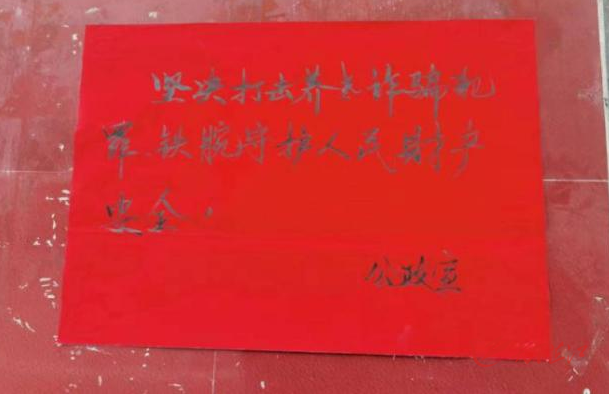 坚决打击养老诈骗犯
罪、铁腕守护人民财产
安全,
公政宣